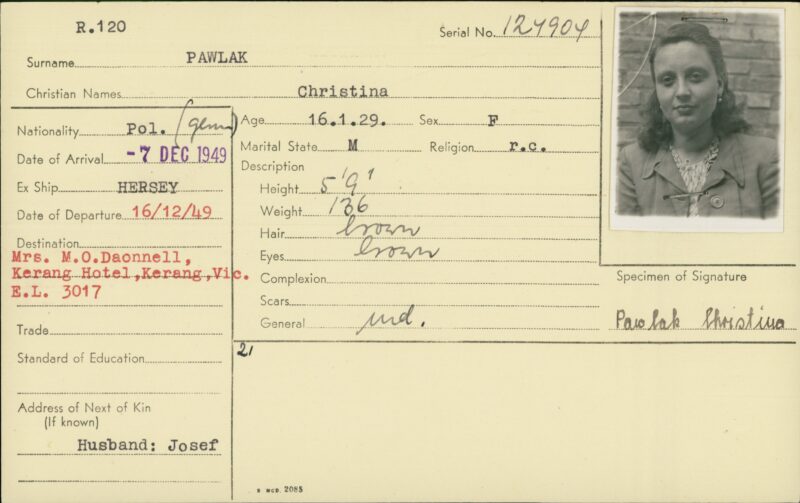 R.120
Serial No. 124904
Surname PAWLAK
Christian Names Christina
Nationality Pol. (germ)
Age 16.1.29. Sex F
Date of Arrival -7 DEC 1949
Marital State M Religion r.c.
Description
Ex Ship HERSEY
Height 5'9"
Date of Departure 16/12/49
Weight 136
Hair brown
Destination
Eyes brown
Mrs. M.O.Daonnell,
Kerang Hotel,Kerang,Vic.
E.L. 3017
Complexion
Scars
General md.
Specimen of Signature
Pawlak Christina
Trade
Standard of Education
21
Address of Next of Kin
(If known)
Husband: Josef
2088